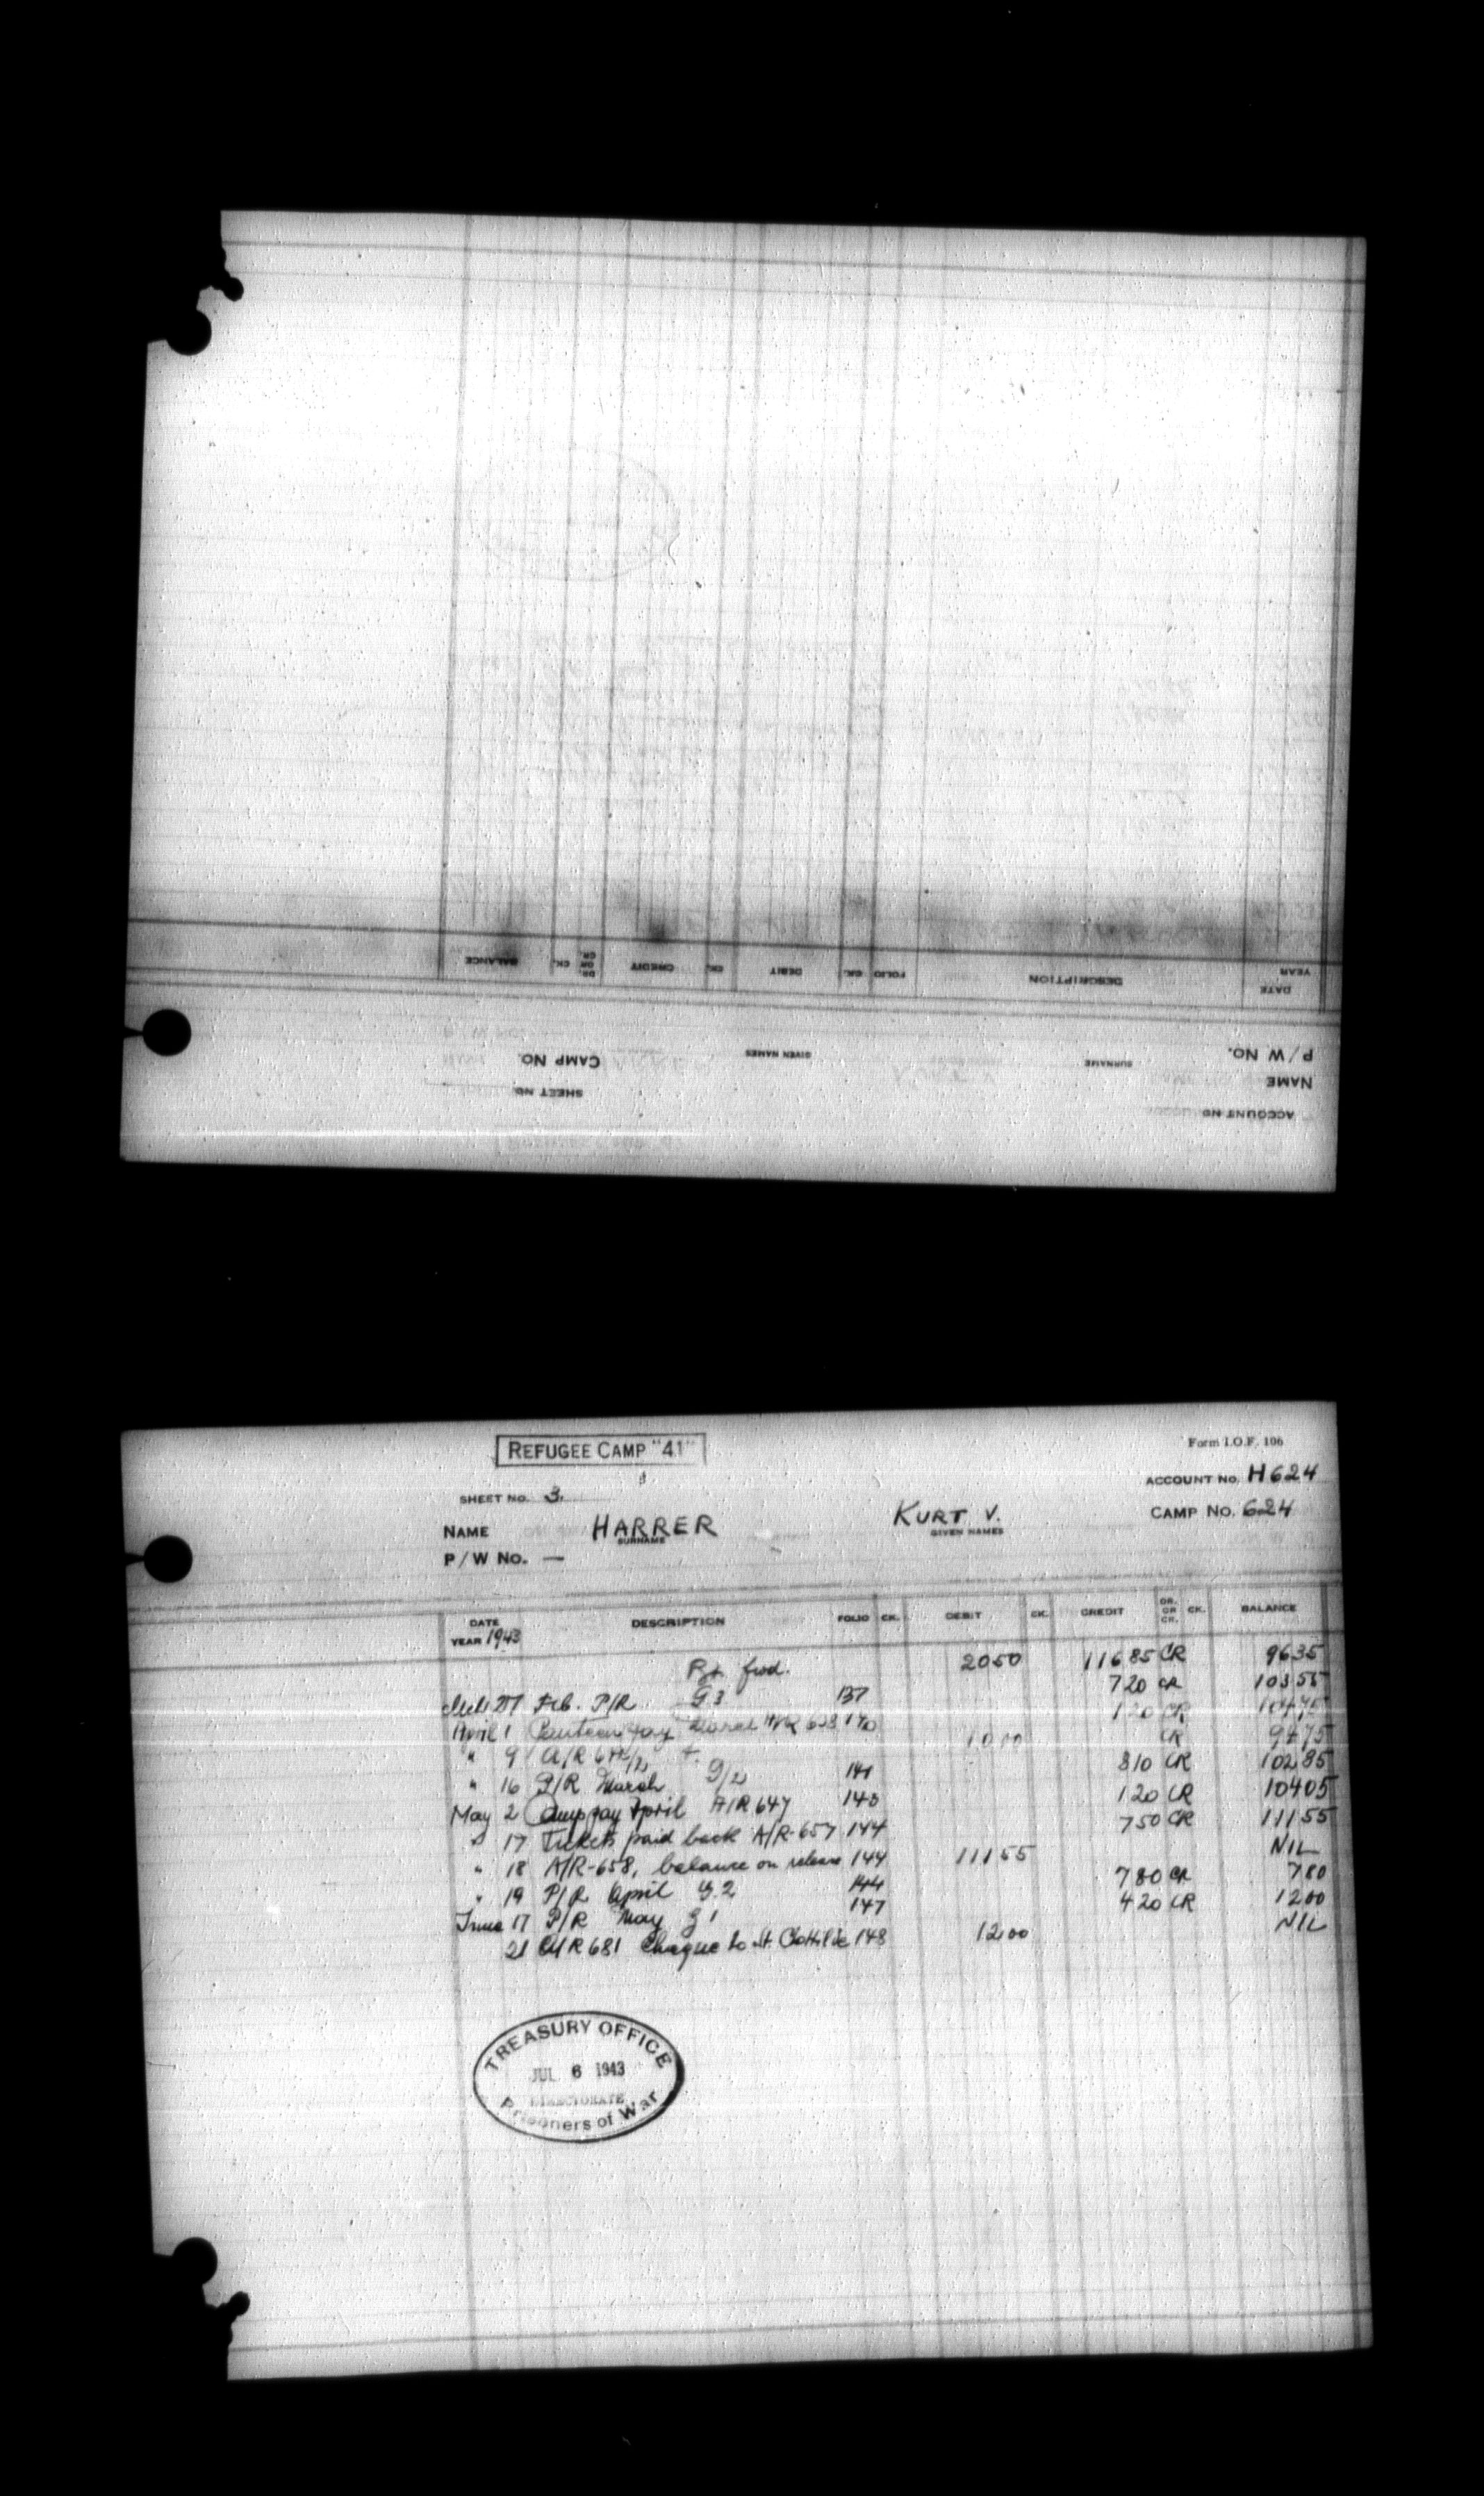 BALANCE CK. DR. OR CR. CREDIT CK. DEBIT CK. FOLIO DESCRIPTION DATE YEAR
CAMP NO. GIVEN NAMES SURNAME P/W NO.
SHEET NO. NAME
ACCOUNT NO.
REFUGEE CAMP "41"
Form I.O.F. 106
SHEET NO. 3. ACCOUNT NO. H624
NAME HARRER KURT V. CAMP NO. 624
SURNAME GIVEN NAMES
P/W NO. —
DATE YEAR 1943 DESCRIPTION FOLIO CK. DEBIT CK. CREDIT DR. OR CR. CK. BALANCE
fwd. 2050 11685 CR 9635
Feb. P/R G3 137 720 CR 10355
April 1 Canteen pay March A/R 140 120 CR 10475
" 9 A/R 1000 CR 9475
" 16 P/R March G/2 141 810 CR 10285
May 2 Camp pay April A/R 647 143 120 CR 10405
" 17 Tickets paid back A/R-657 144 750 CR 11155
" 18 A/R-658, balance on release 144 11155 NIL
" 19 P/R April G.2 144 780 CR 780
June 17 P/R May G1 147 420 CR 1200
21 A/R 681 Cheque to St. Clothilde 148 1200 NIL
TREASURY OFFICE
JUL 6 1943
DIRECTORATE
Prisoners of War